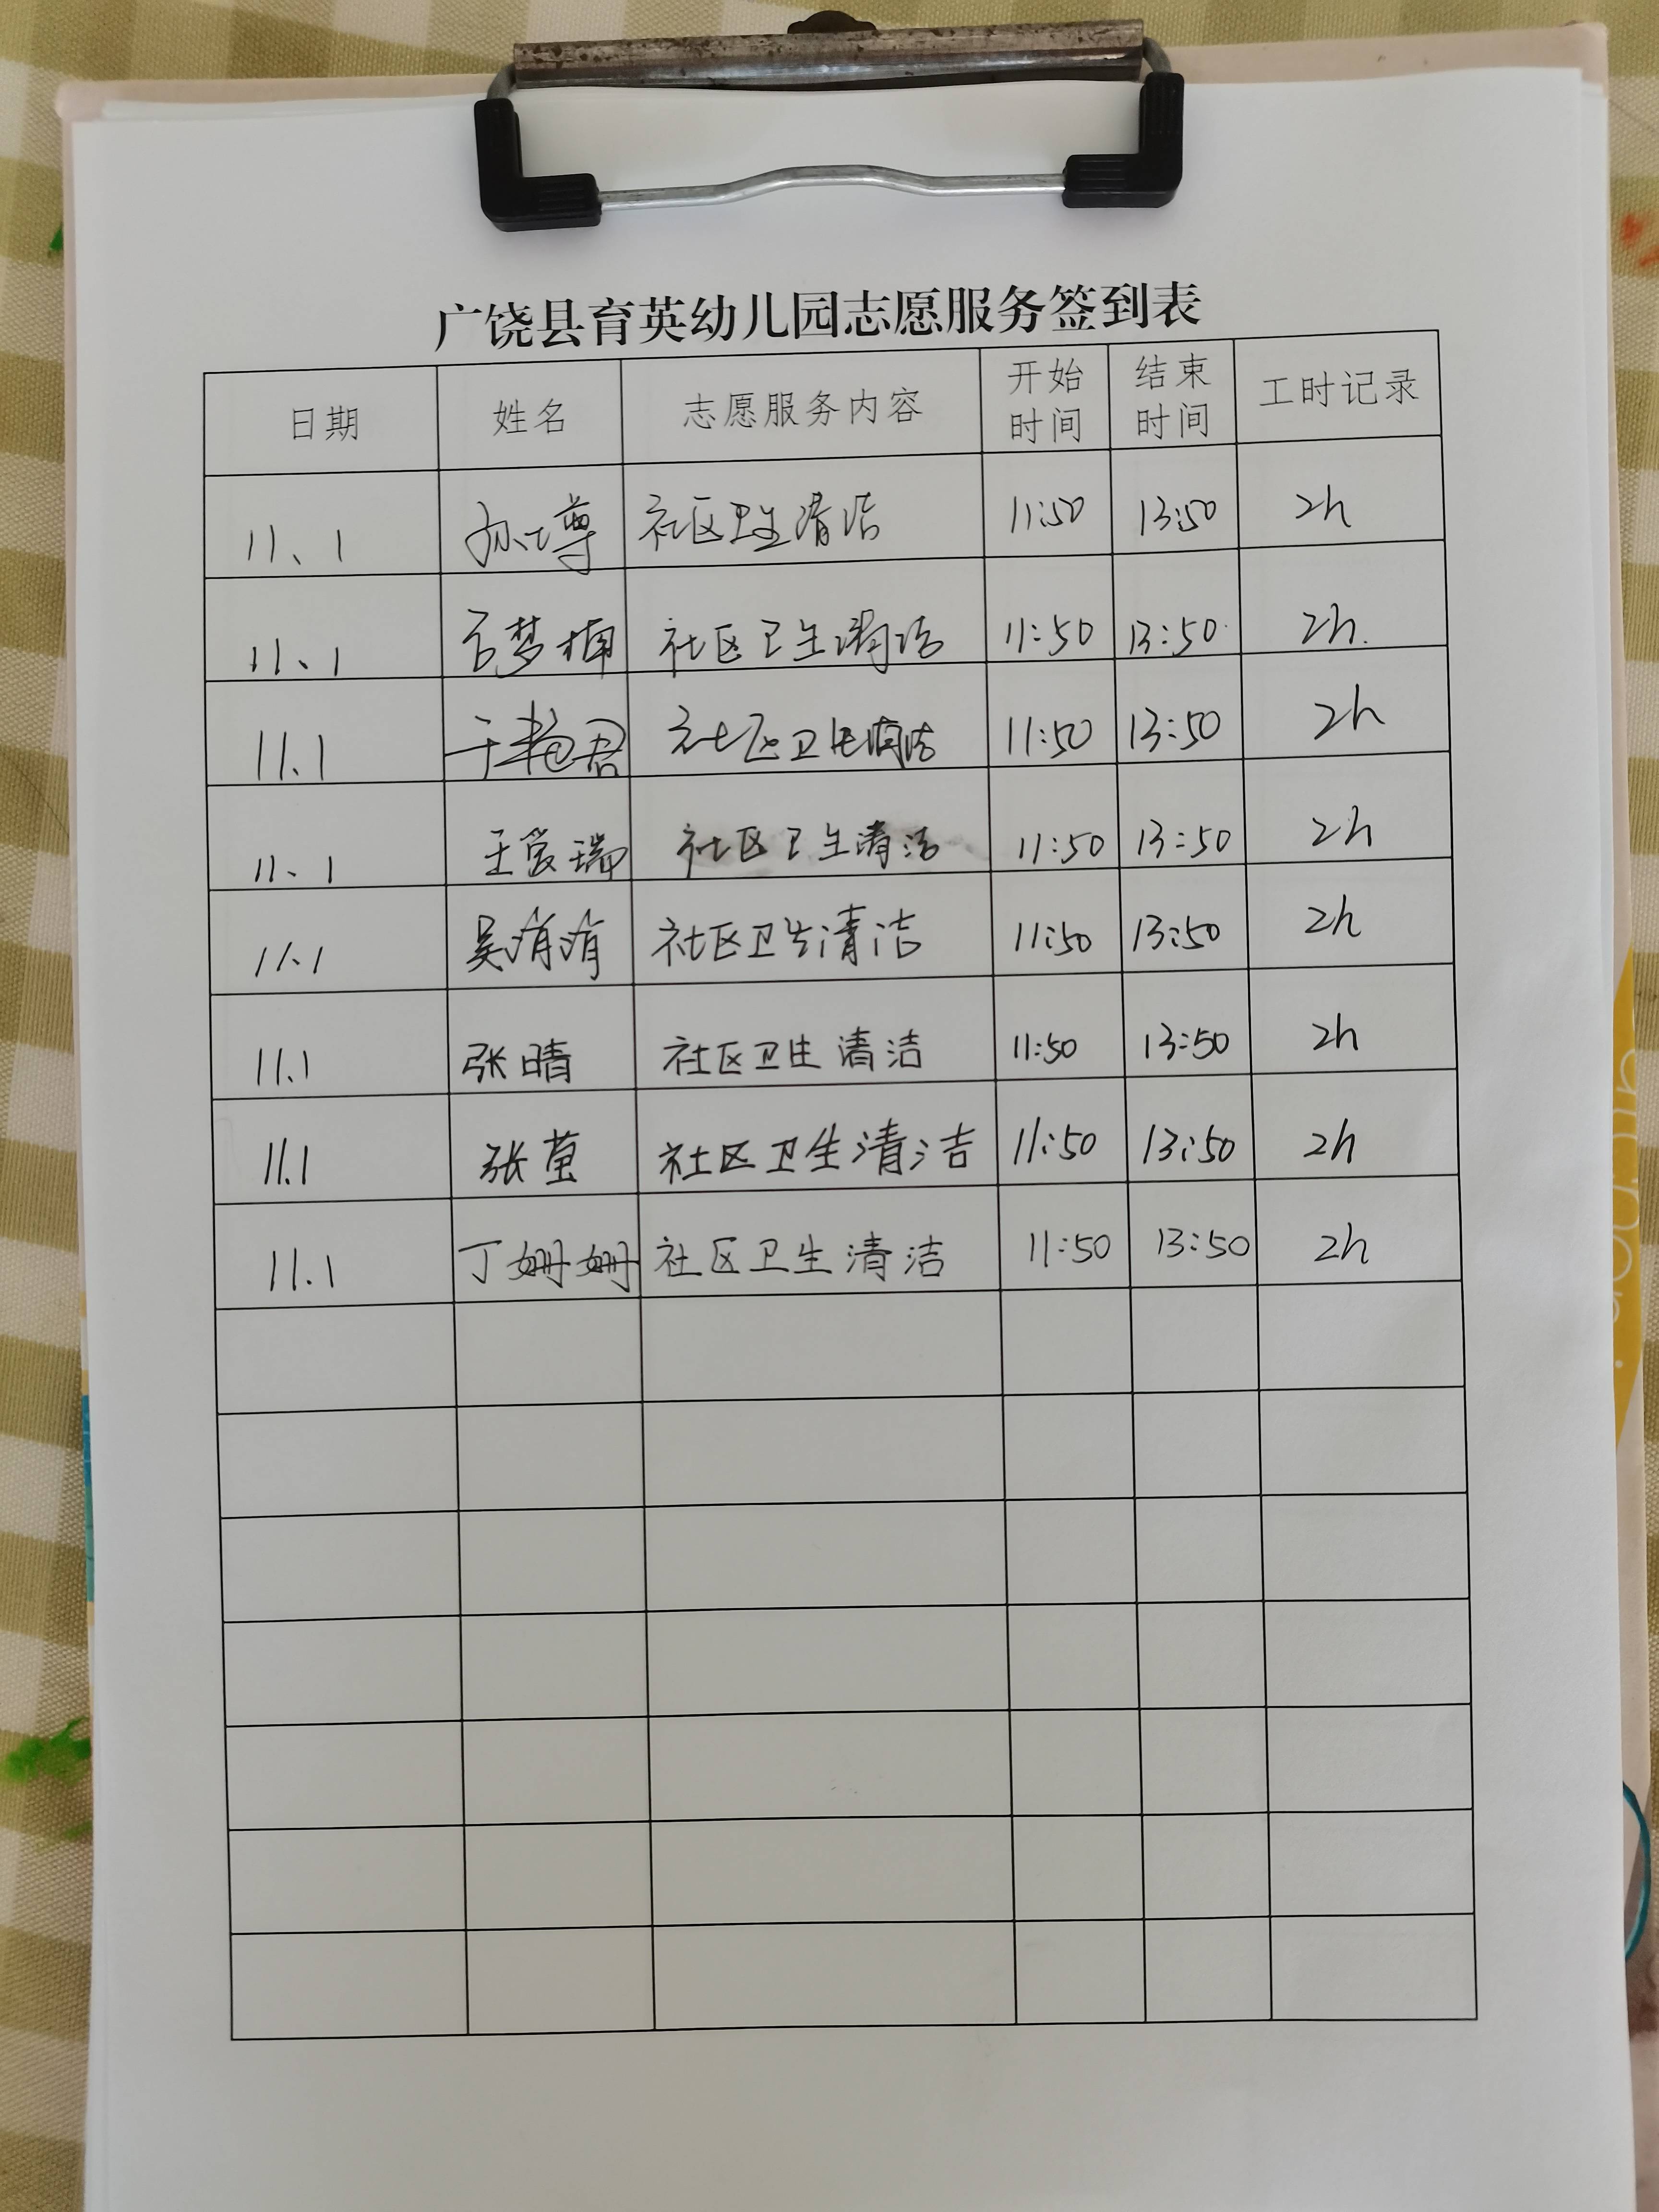 广饶县育英幼儿园志愿服务签到表
日期 姓名 志愿服务内容 开始时间 结束时间 工时记录
11、1 社区卫生清洁 11:50 13:50 2h
11、1 梦楠 社区卫生清洁 11:50 13:50 2h.
11.1 于艳君 社区卫生清洁 11:50 13:50 2h
11、1 王爱瑞 社区卫生清洁 11:50 13:50 2h
11.1 吴 社区卫生清洁 11:50 13:50 2h
11.1 张晴 社区卫生清洁 11:50 13:50 2h
11.1 张萤 社区卫生清洁 11:50 13:50 2h
11.1 丁姗姗 社区卫生清洁 11:50 13:50 2h